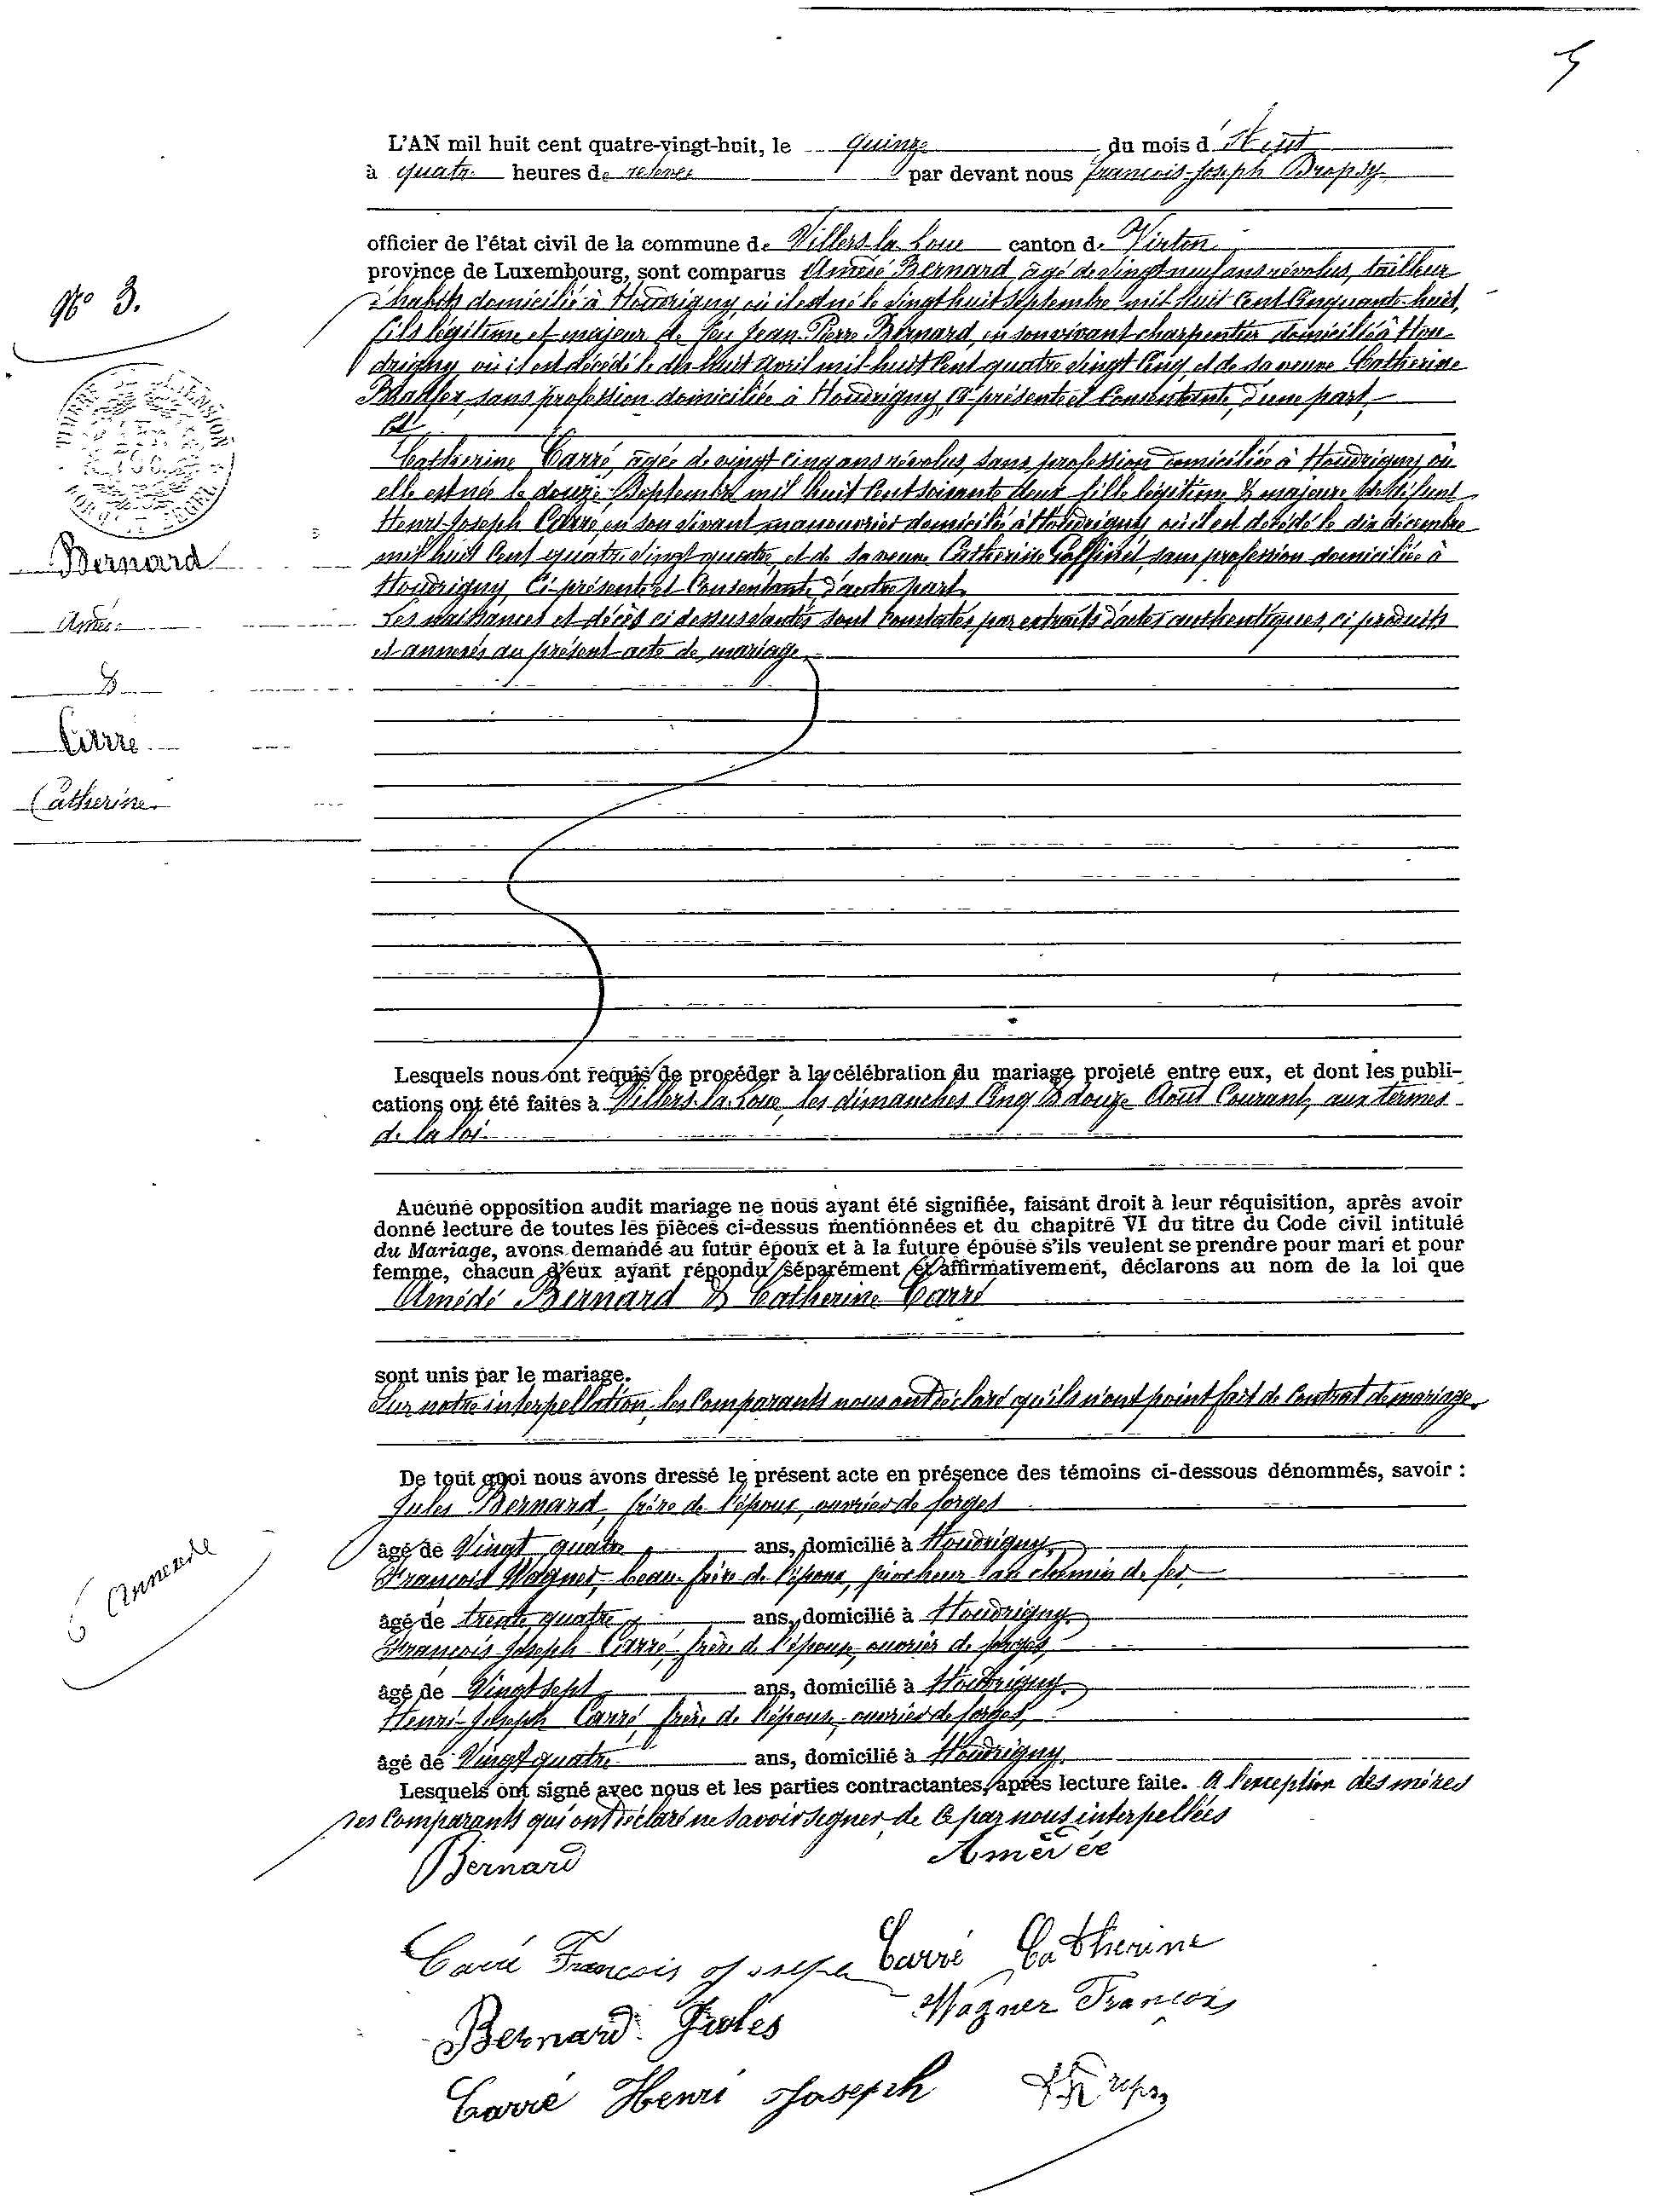 5
L'AN mil huit cent quatre-vingt-huit, le quinze du mois d'Août
à quatre heures de relevée par devant nous François-Joseph Dropsy
officier de l'état civil de la commune de Villers-la-Loue canton de Virton
province de Luxembourg, sont comparus Amédé Bernard, âgé de vingt neuf ans révolus, tailleur
d'habits domicilié à Houdrigny, où il est né le vingt huit Septembre mil huit cent cinquante-huit,
fils légitime et majeur de feu Jean-Pierre Bernard, en son vivant charpentier domicilié à Hou-
drigny où il est décédé le dix huit avril mil huit cent quatre vingt cinq et de sa veuve Catherine
sans profession domiciliée à Houdrigny, ci-présente et consentante, d'une part,
Et
Catherine Carré, âgée de vingt cinq ans révolus, sans profession domiciliée à Houdrigny, où
elle est née le douze Septembre mil huit cent soixante deux fille légitime & majeure de défunt
Henri-Joseph Carré, en son vivant manouvrier domicilié à Houdrigny, où il est décédé le dix décembre
mil huit cent quatre vingt quatre et de sa veuve Catherine Goffinet, sans profession domiciliée à
Houdrigny, ci-présente et consentante, d'autre part.
Les naissances et décès ci dessus datés sont constatés par extraits d'actes authentiques, ci produits
et annexés au présent acte de mariage.
N° 3.
Bernard
Amédé
&
Carré
Catherine
Lesquels nous ont requis de procéder à la célébration du mariage projeté entre eux, et dont les publi-
cations ont été faites à Villers-la-Loue, les dimanches cinq & douze Août courant, aux termes
de la loi.
Aucune opposition audit mariage ne nous ayant été signifiée, faisant droit à leur réquisition, après avoir
donné lecture de toutes les pièces ci-dessus mentionnées et du chapitre VI du titre du Code civil intitulé
du Mariage, avons demandé au futur époux et à la future épouse s'ils veulent se prendre pour mari et pour
femme, chacun d'eux ayant répondu séparément et affirmativement, déclarons au nom de la loi que
Amédé Bernard & Catherine Carré
sont unis par le mariage.
Sur notre interpellation, les comparants nous ont déclaré qu'ils n'ont point fait de contrat de mariage.
De tout quoi nous avons dressé le présent acte en présence des témoins ci-dessous dénommés, savoir :
Jules Bernard, frère de l'époux, ouvrier de forges
âgé de Vingt quatre ans, domicilié à Houdrigny,
François Wagner, beau-frère de l'époux, piocheur au chemin de fer
âgé de trente quatre ans, domicilié à Houdrigny,
François-Joseph Carré, frère de l'épouse, ouvrier de forges,
âgé de Vingt sept ans, domicilié à Houdrigny,
Henri-Joseph Carré, frère de l'épouse, ouvrier de forges,
âgé de Vingt quatre ans, domicilié à Houdrigny.
Lesquels ont signé avec nous et les parties contractantes, après lecture faite. A l'exception des mères
des comparants qui ont déclaré ne savoir signer, de ce par nous interpellées
6 Annexes
Bernard Amédée
Carré François Joseph Carré Catherine
Bernard Jules Wagner François
Carré Henri Joseph